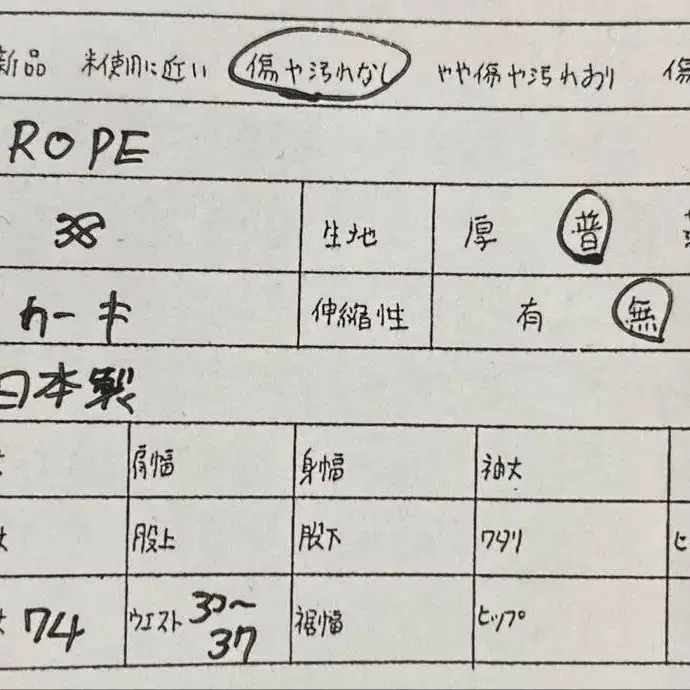 新品 未使用に近い 傷や汚れなし やや傷や汚れあり 傷
ROPE
38 生地 厚 普
カーキ 伸縮性 有 無
日本製
肩幅 身幅 袖丈
股上 股下 ワタリ ヒ
丈 74 ウエスト 30〜37 裾幅 ヒップ